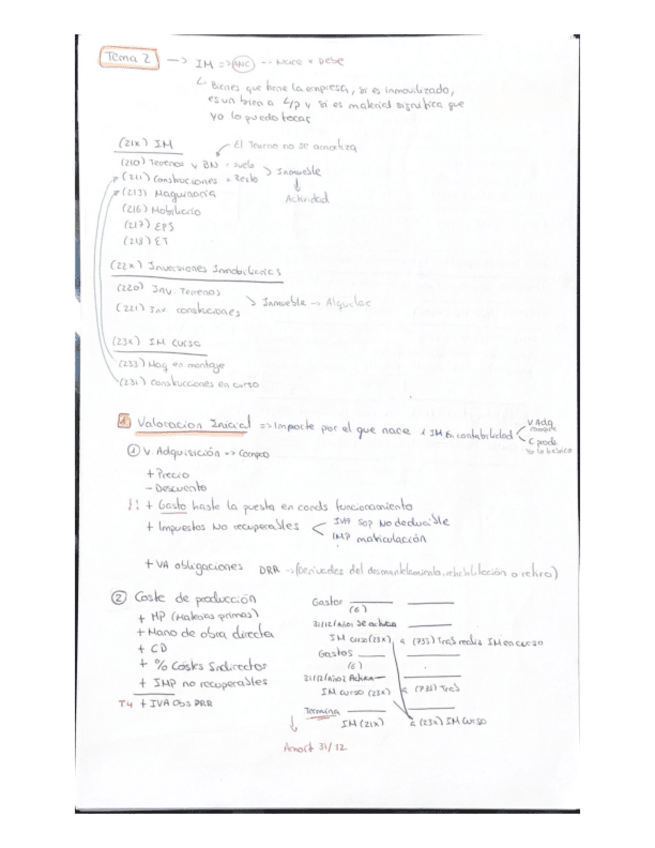 Tema 2 → IM => ANC -- Nace x Debe
↳ Bienes que tiene la empresa, si es inmovilizado,
es un bien a L/p y si es material significa que
yo lo puedo tocar
(21x) IM
El Terreno no se amortiza
(210) Terrenos y BN = suelo
(211) Construcciones = Resto > Inmueble
(213) Maquinaria
↓ Actividad
(216) Mobiliario
(217) EPI
(218) ET
(22x) Inversiones Inmobiliarias
(220) Inv. Terrenos
(221) Inv. construcciones > Inmueble → Alquilar
(23x) IM Curso
(233) Maq en montaje
(231) Construcciones en curso
1 Valoracion Inicial => Importe por el que nace 1 IM En contabilidad < V. Adq compre
C prod. Yo lo fabrico
① V. Adquisición => Compro
+ Precio
- Descuento
!! + Gasto hasta la puesta en conds funcionamiento
+ Impuestos No recuperables < IVA Sop No deducible
IMP matriculación
+ VA obligaciones DRR → (Derivadas del desmantelamiento, rehabilitación o retiro)
② Coste de producción
+ MP (Materias primas)
+ Mano de obra directa
+ CD
+ % Costes Indirectos
+ IMP no recuperables
T4 + VA Obs DRR
Gastos
(6)
31/12/Años se activa
IM curso (23x) a (733) Trab realiz IM en curso
Gastos
(6)
31/12/Años Activa
IM curso (23x) a (733) Trab
Termina
IM (21x) a (23x) IM curso
↓
Amort 31/12